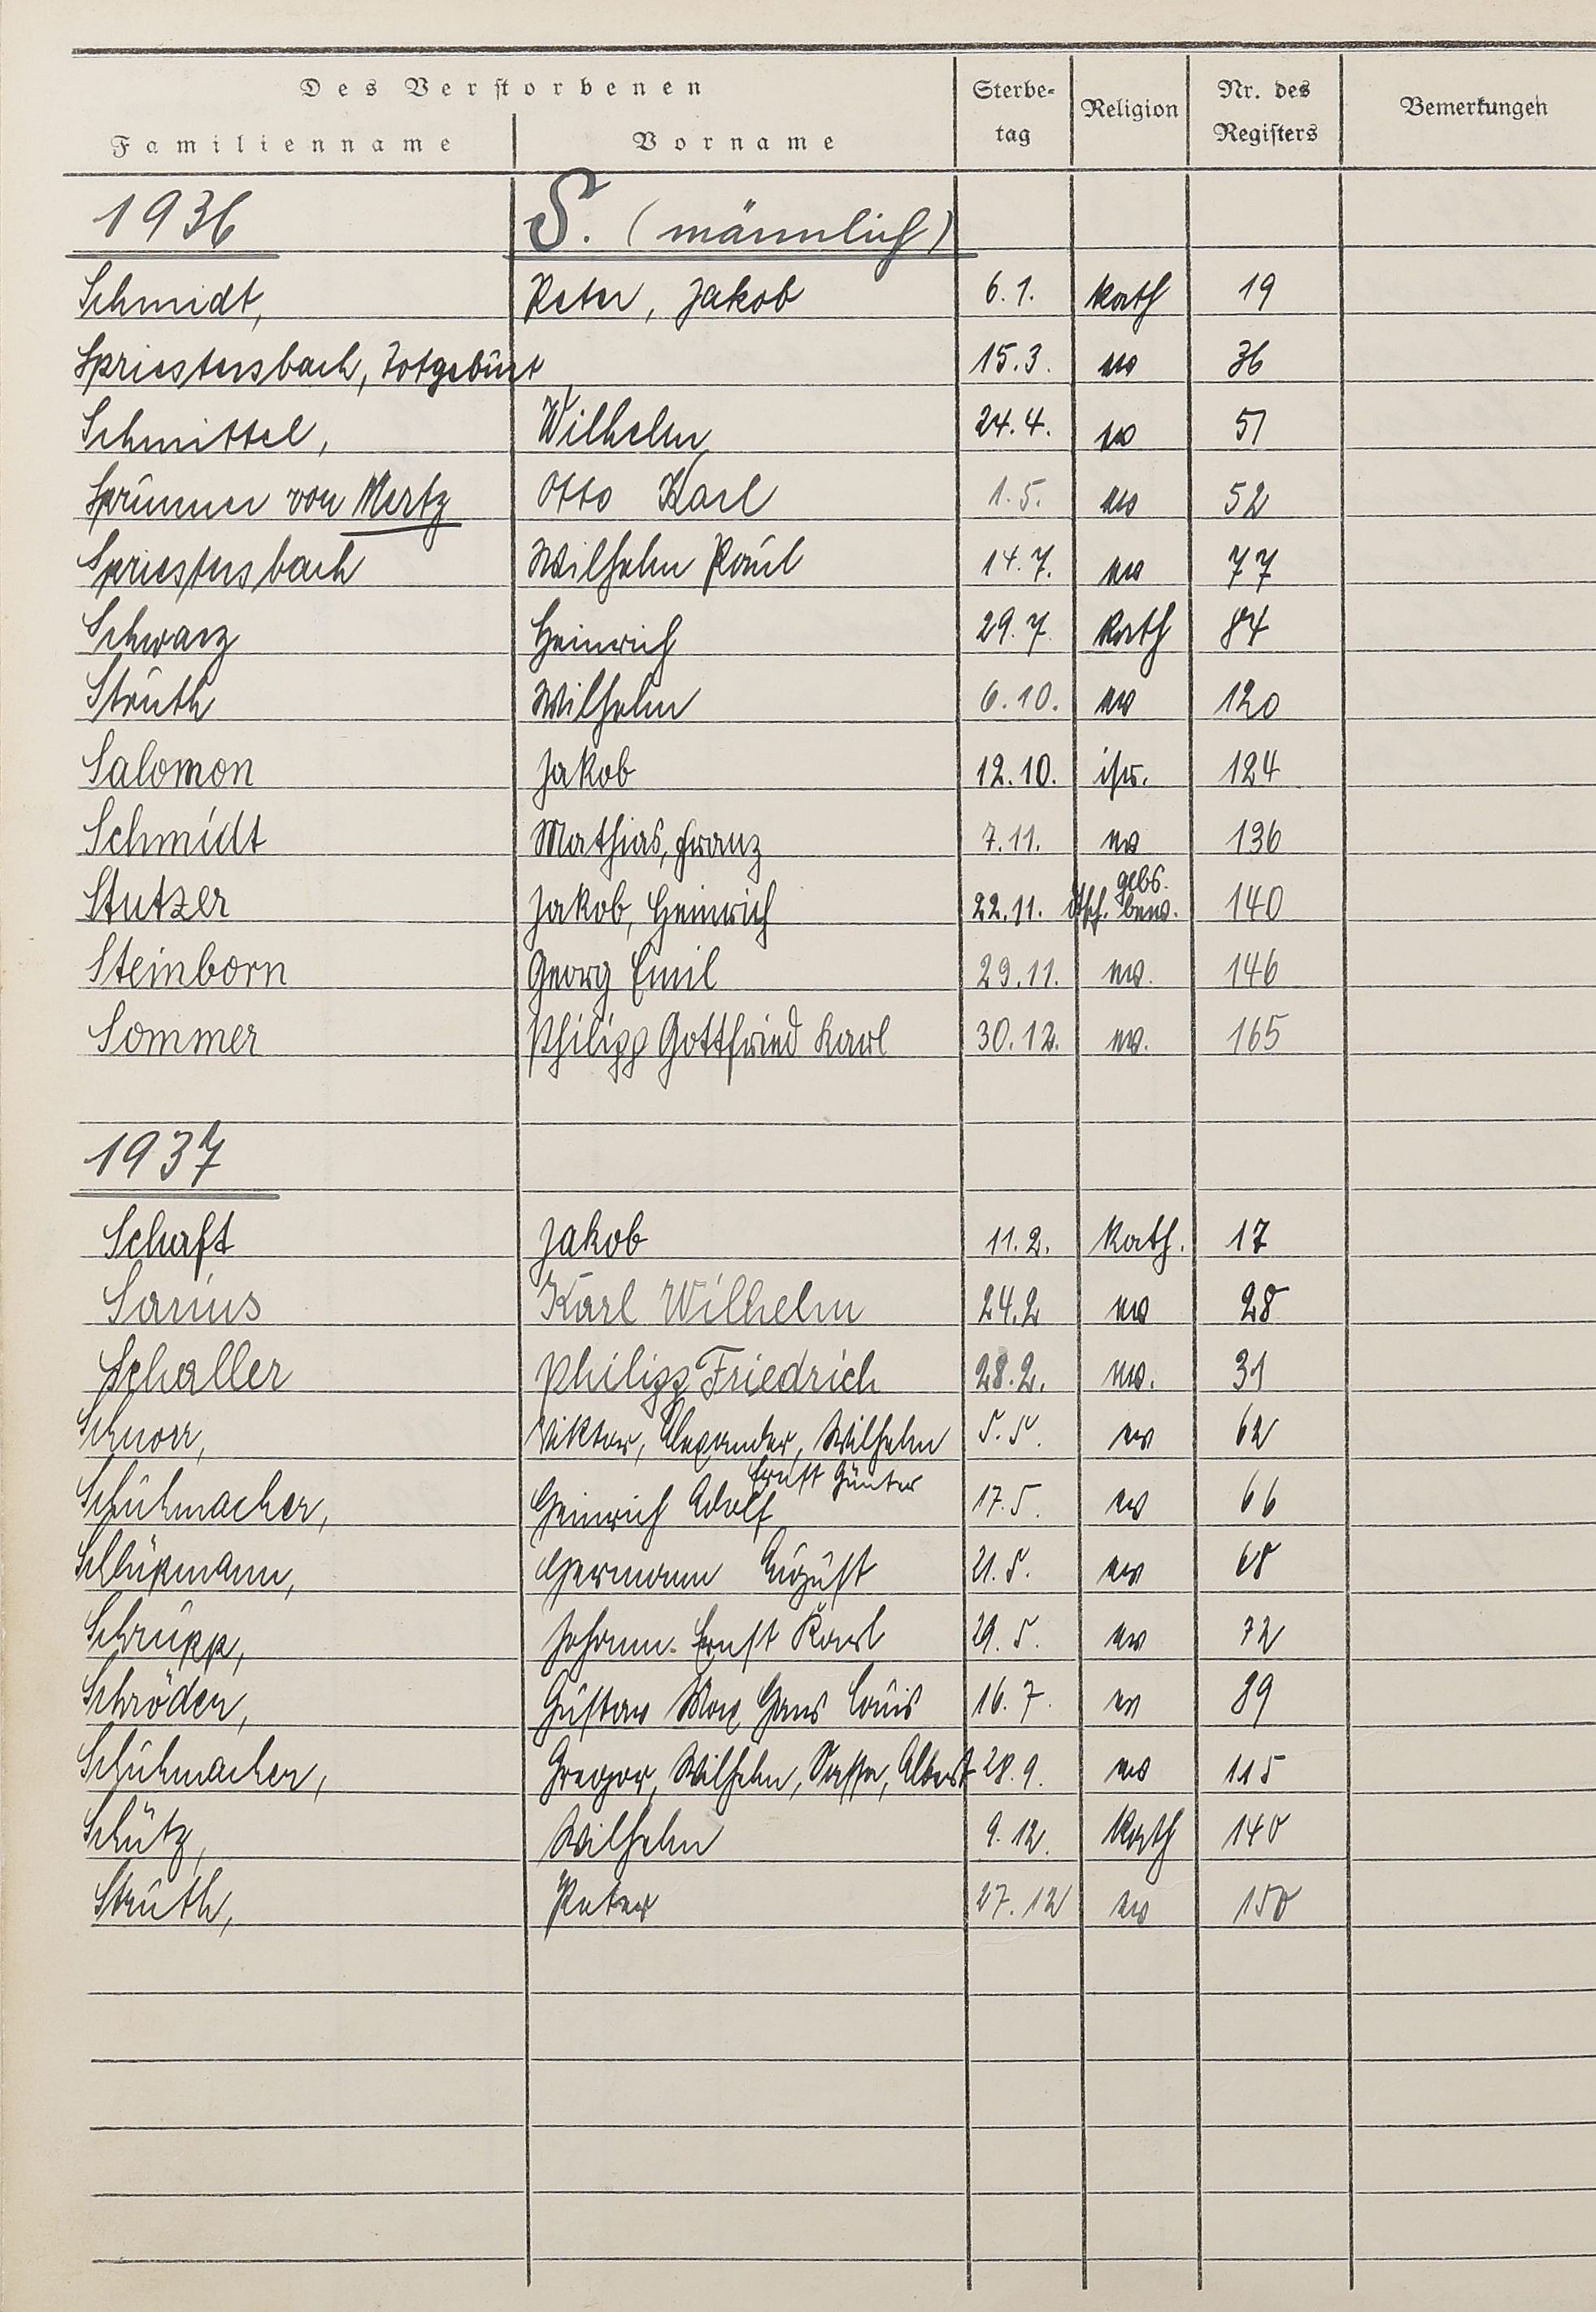 Des Verstorbenen
Sterbe-
tag
Religion
Nr. des
Registers
Bemerkungen
Familienname Vorname
1936 S. (männlich)
Schmidt, Peter, Jakob 6.1. kath 19
Spriestersbach, Totgeburt 15.3. ev 36
Schmittel, Wilhelm 24.4. ev 51
Sprunner von Mertz Otto Karl 1.5. ev 52
Spriestersbach Wilhelm Paul 14.7. ev 77
Schwarz Heinrich 29.7. kath 84
Struth Wilhelm 6.10. ev 120
Salomon Jakob 12.10. isr. 124
Schmidt Mathias, Franz 7.11. ev 136
Stutzer Jakob, Heinrich 22.11. 140
Steinborn Georg Emil 29.11. ev. 146
Sommer Philipp Gottfried Karl 30.12. ev. 165
1937
Schaft Jakob 11.2. Kath. 17
Sarius Karl Wilhelm 24.2 ev 28
Schaller Philipp Friedrich 28.2. ev. 31
Schnorr, Viktor, Alexander, Wilhelm 5.5. ev 62
Ernst Günter
Schuhmacher, Heinrich Adolf 17.5. ev 66
Hermann August 21.5. ev 68
Schrupp, Johann Ernst Karl 29.5. ev 72
Schröder, Gustav Max Hans Louis 16.7. ev 89
Schuhmacher, Gregor, Wilhelm, Albert 28.9. ev 115
Schütz, Wilhelm 9.12. Kath 140
Struth, Peter 27.12 ev 150